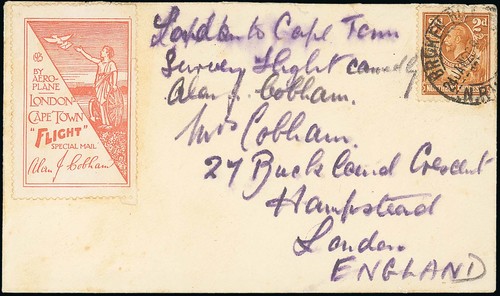 BY
AERO-
PLANE
LONDON-
CAPE TOWN
"FLIGHT"
SPECIAL MAIL
Alan J Cobham
London to Cape Town
Survey flight carried by
Alan J. Cobham.
Mrs Cobham.
27 Buckland Crescent
Hampstead
London
ENGLAND
2d